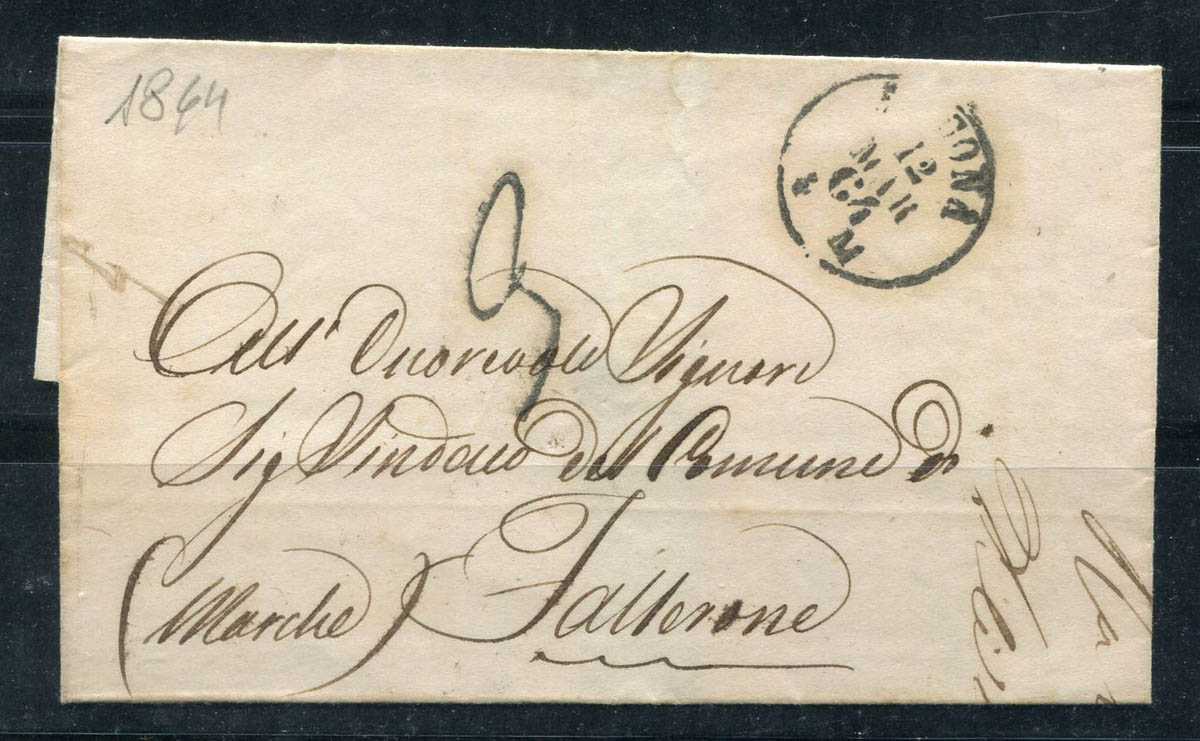 1864
12
MAR
64
M
All' Onorevole Signore
Sig Sindaco del Comune di
(Marche) Fallerone